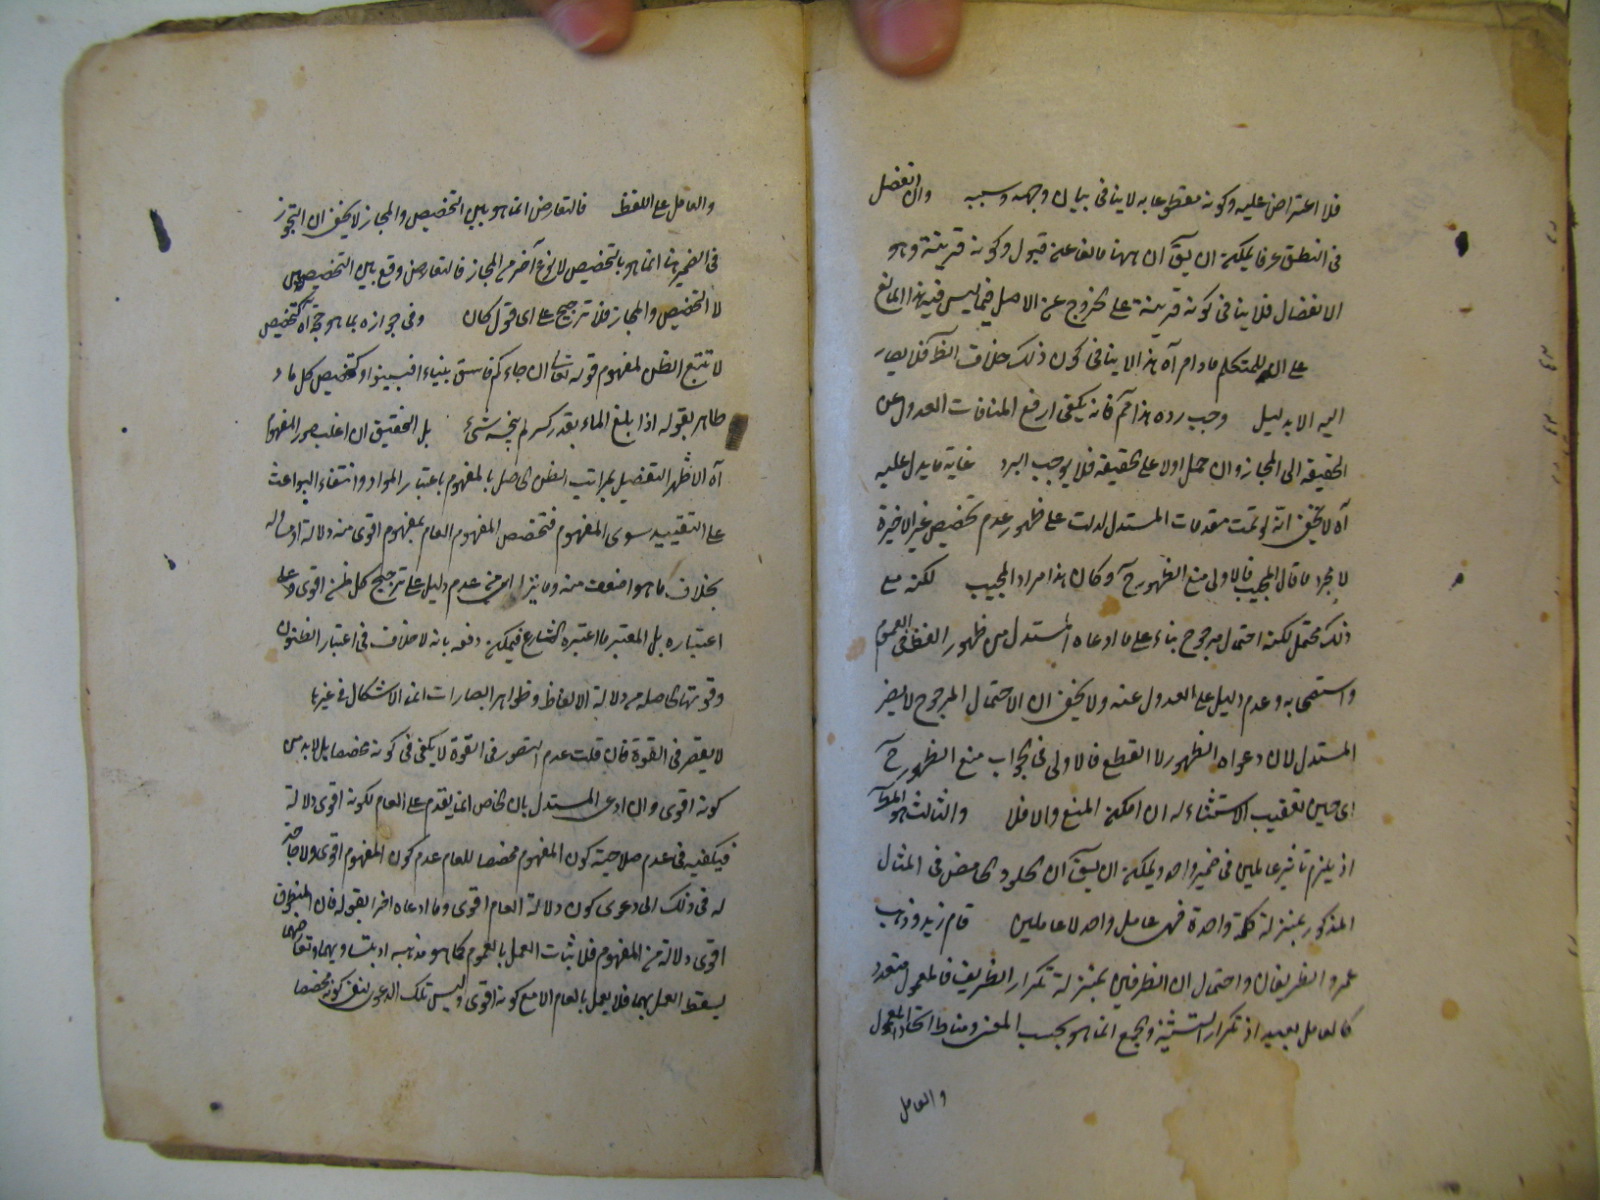 فلا اعتراض عليه وكونه مقطوعا به لا ينافى بيان وجهه وسببه والانفصل
فى النطق عرفا يمكن ان يق ان ههنا مانعا عن قبول وكونه قرينة وهو
الانفصال فلا ينافى كونه قرينة على الخروج عن الاصل فيما ليس فيه هذا المانع
على ان للمتكلم مادام آه هذا لا ينافى كون ذلك خلاف الظ فلا يصار
اليه الا بدليل وجب رده هذا ثم فانه يكفى لرفع المنافات العدول عن
الحقيقة الى المجاز وان حمل اولا على الحقيقة فلا يوجب الرد غاية ما يدل عليه
آه لا يخفى انه لو تمت مقدمات المستدل لدلت على ظهور عدم تخصيص غير الاخيرة
لا مجرد ما قال المجيب فالاولى منع الظهور ح وكان هذا مراد المجيب لكنه مع
ذلك محتمل لكنه احتمال مرجوح بناء على ما ادعاه المستدل من ظهور اللفظ فى العموم
واستصحابه وعدم دليل على العدول عنه ولا يخفى ان الاحتمال المرجوح لا يضر
المستدل لان دعواه الظهور لا القطع فالاولى فى الجواب منع الظهور ح
اى حين تعقيب الاستثناء له ان امكن المنع والا فلا والثالث هو
اذ يلزم تاثير عاملين فى ضمير واحد ويمكن ان يق ان الحلو والحامض فى المثال
المذكور بمنزلة كلمة واحدة فهى عامل واحد لا عاملين قام زيد وذهب
عمرو الظريفان واحتمال ان الظرفين بمنزلة تكرار الظريف فالمعمول متعدد
كالعامل بعيد اذ تكرار التثنية والجمع انما هو بحسب المعنى ومناط اتحاد المعمول
والعامل
والعامل على اللفظ فالتعارض انما هو بين التخصيص والمجاز لا يخفى ان التجوز
فى الضمير هنا انما هو بالتخصيص لا نوع آخر من المجاز فالتعارض وقع بين التخصيصين
لا التخصيص والمجاز فلا ترجيح على اى قول كان وفى جوازه بما هو حجة آه كتخصيص
لا تتبع الظن لمفهوم قوله تعالى ان جاءكم فاسق بنباء فتبينوا وكتخصيص كل ماء
طاهر بقوله اذا بلغ الماء بقدر كر لم ينجسه شئ بل التحقيق ان اغلب صور المفهوم
آه الاظهر التفصيل بمراتب الظن الحاصل بالمفهوم باعتبار المواد وانتفاء البواعث
على التقييد سوى المفهوم فتخصص المفهوم العام بمفهوم اقوى منه دلالة او مساو له
بخلاف ما هو اضعف منه وما يتراءى من عدم دليل على ترجيح كل ظن اقوى وعلى
اعتباره بل المعتبر ما اعتبره الشارع فيمكن دفعه بانه لا خلاف فى اعتبار الظنون
وقوتها الحاصلة من دلالة الالفاظ وظواهر العبارات انما الاشكال فى غيرها
لا يقصر فى القوة فان قلت عدم القصور فى القوة لا يكفى فى كونه مخصصا بل لابد من
كونه اقوى وان ادعى المستدل بان الخاص انما يقدم على العام لكونه اقوى دلالة
فيكفيه فى عدم صلاحية كون المفهوم مخصصا للعام عدم كون المفهوم اقوى ولا حاجة
له فى ذلك الى دعوى كون دلالة العام اقوى وما ادعاه اخرا بقوله فان المنطوق
اقوى دلالة من المفهوم فلاثبات العمل بالعموم كما هو مذهبه اذ بتساويهما وتعارضهما
يسقط العمل بهما فلا يعمل بالعام الا مع كونه اقوى وليس تلك الدعوى لنفى كونه مخصصا